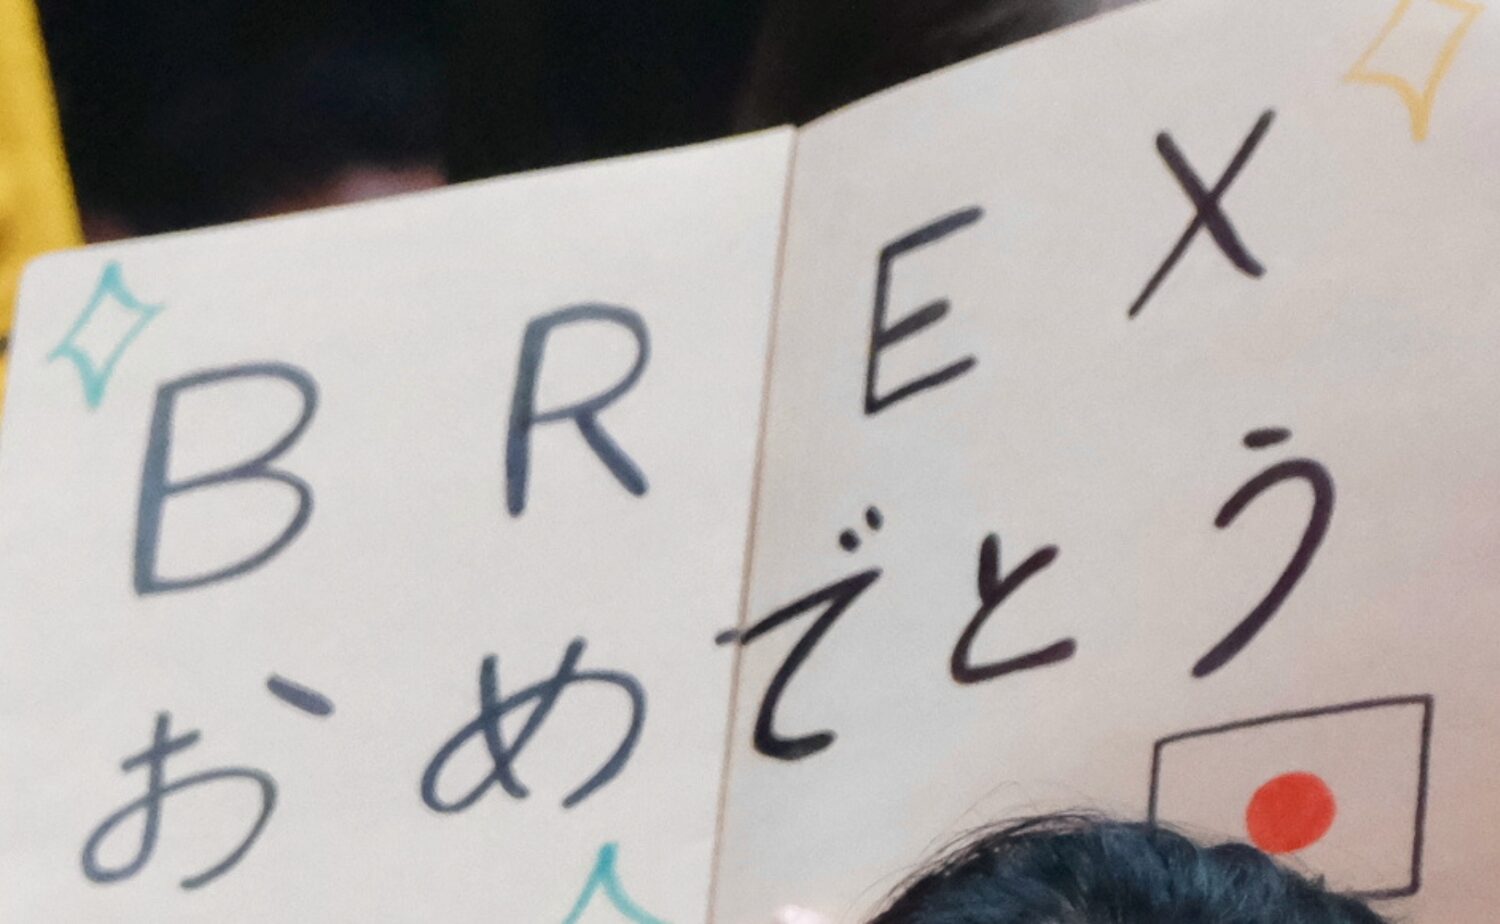 BREX
おめでとう